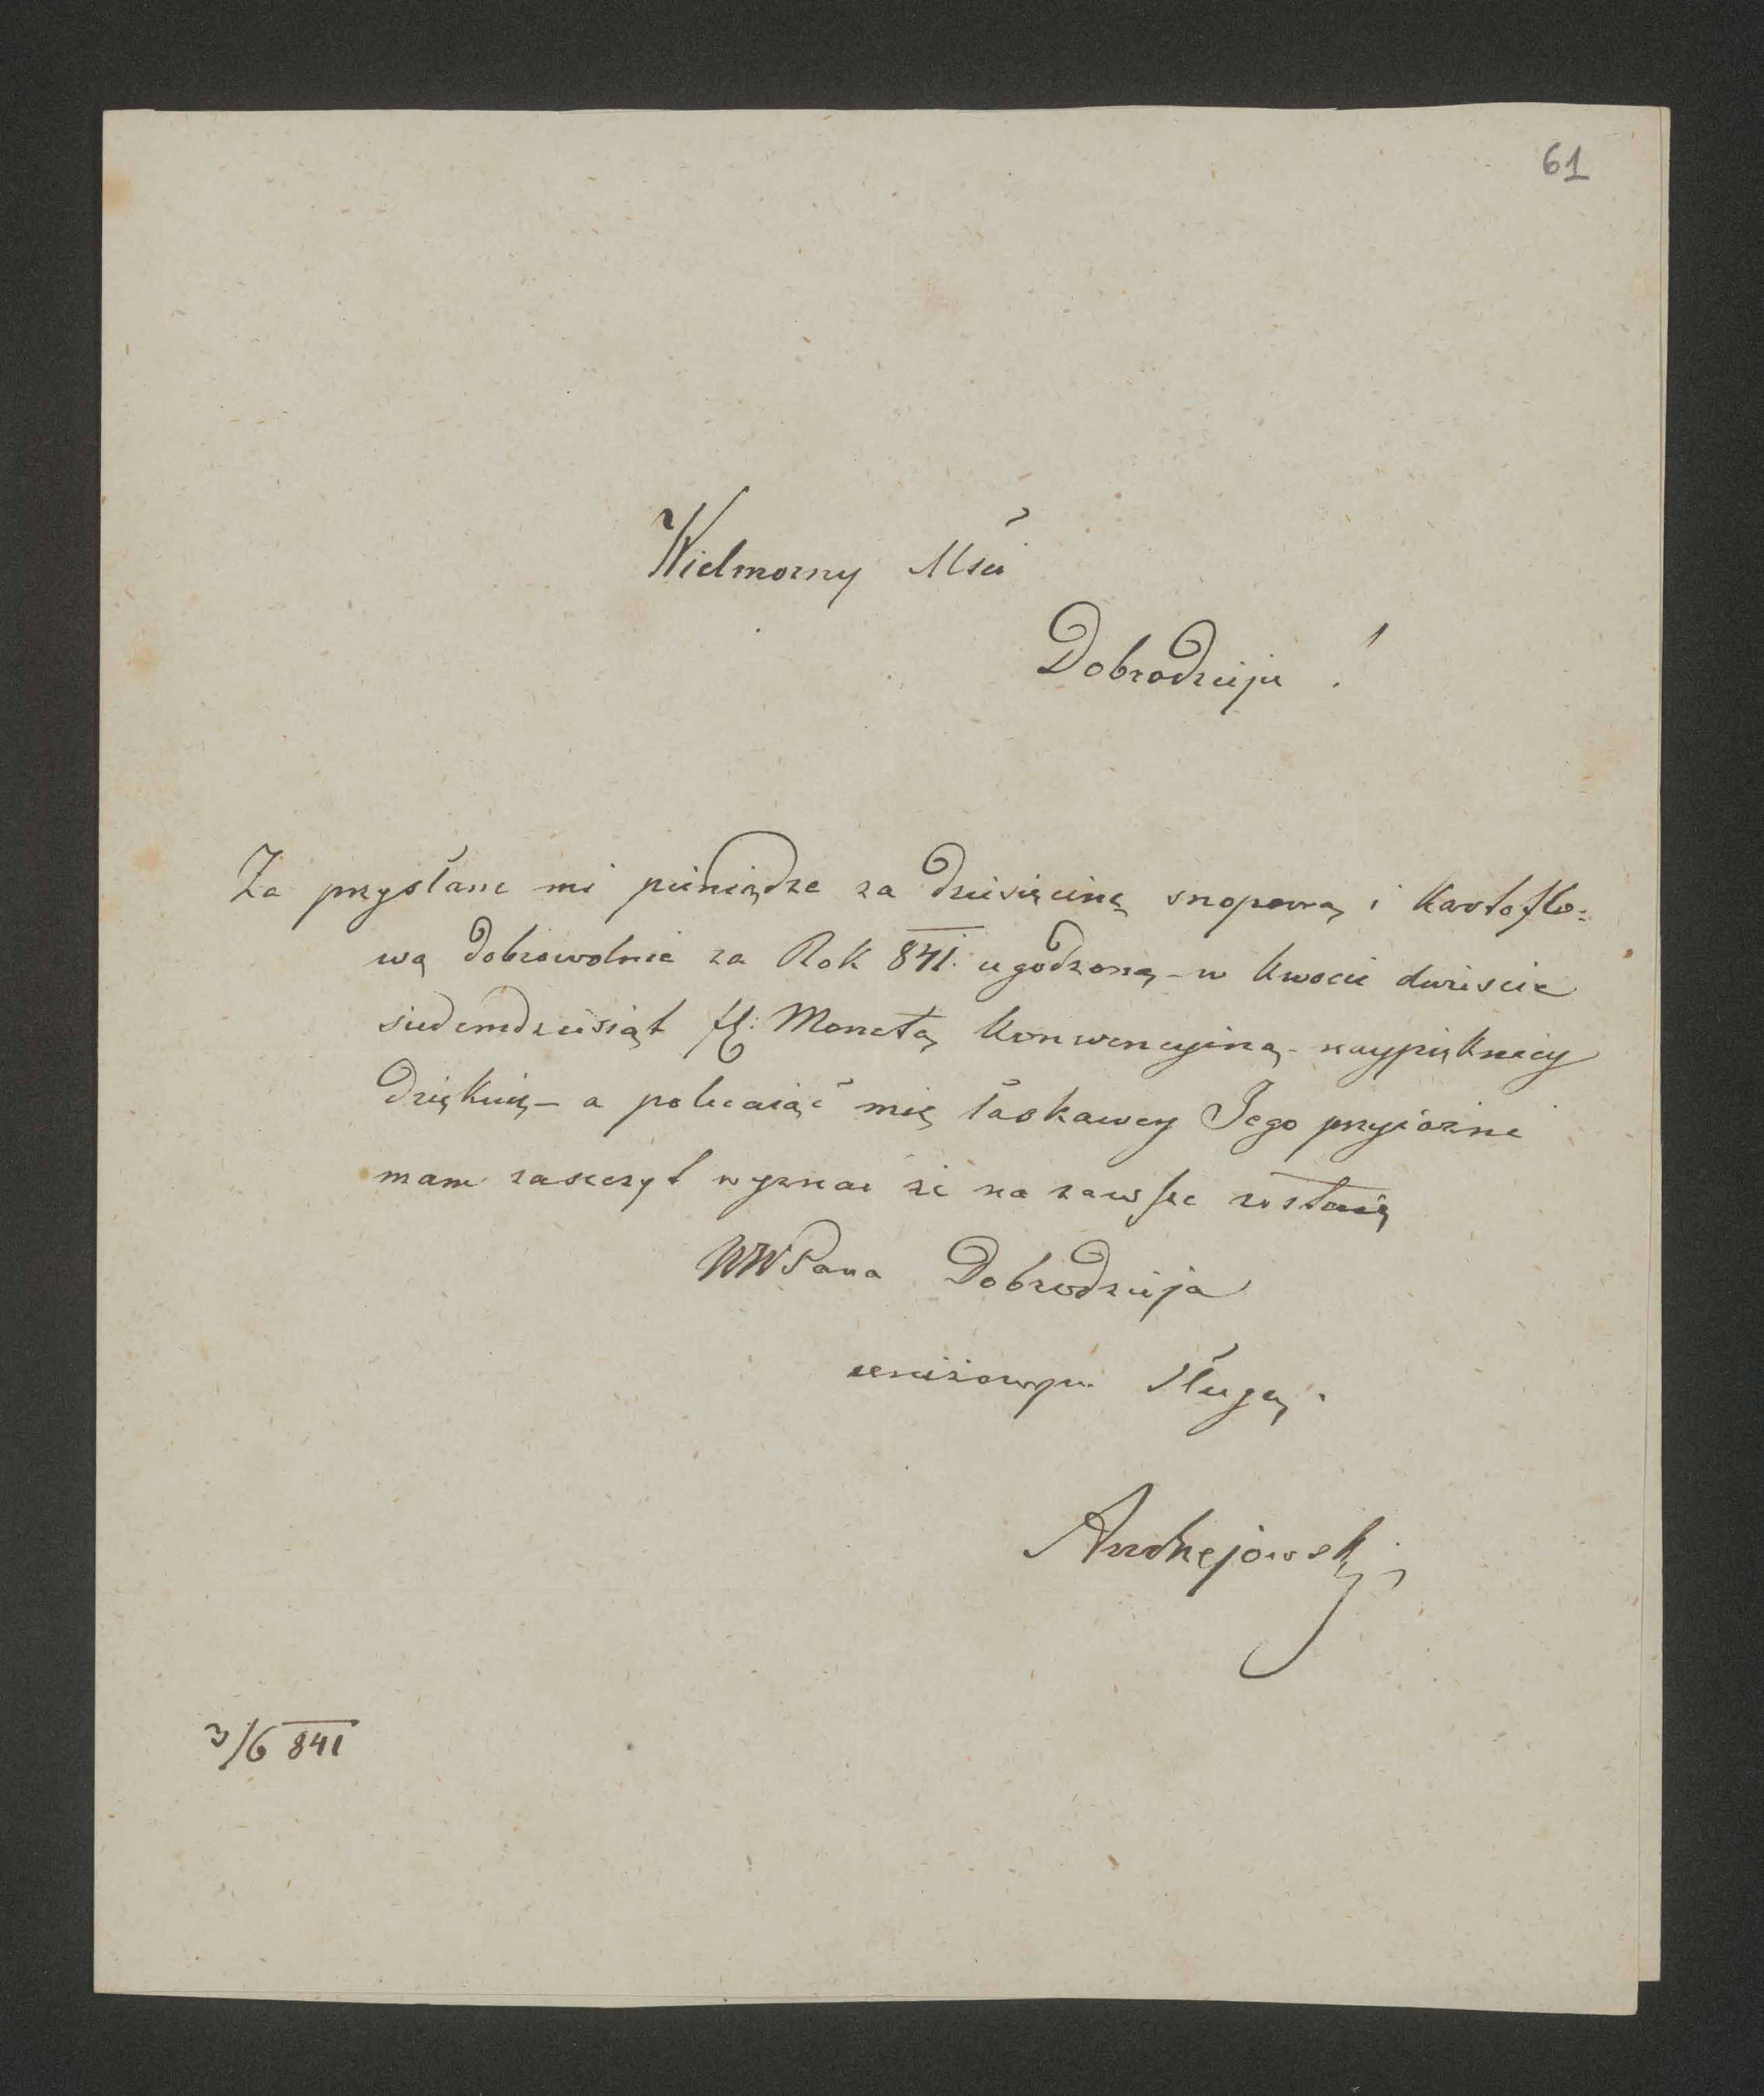 61
Wielmożny Mści
Dobrodzieju !
Za przysłane mi pieniądze za dziesięcinę snopową i kartoflo=
wą dobrowolnie za Rok 841. ugodzoną – w kwocie dwieście
siedemdziesiąt fl: Monetą konwencyiną – naypiękniey
dziękuię – a polecaiąć mię łaskawey Jego przyiaźni
mam zaszczyt wyznać że na zawsze zostaię
WWPana Dobrodzieja
uniżonym Sługą.
Andrzejowski
3/6 841